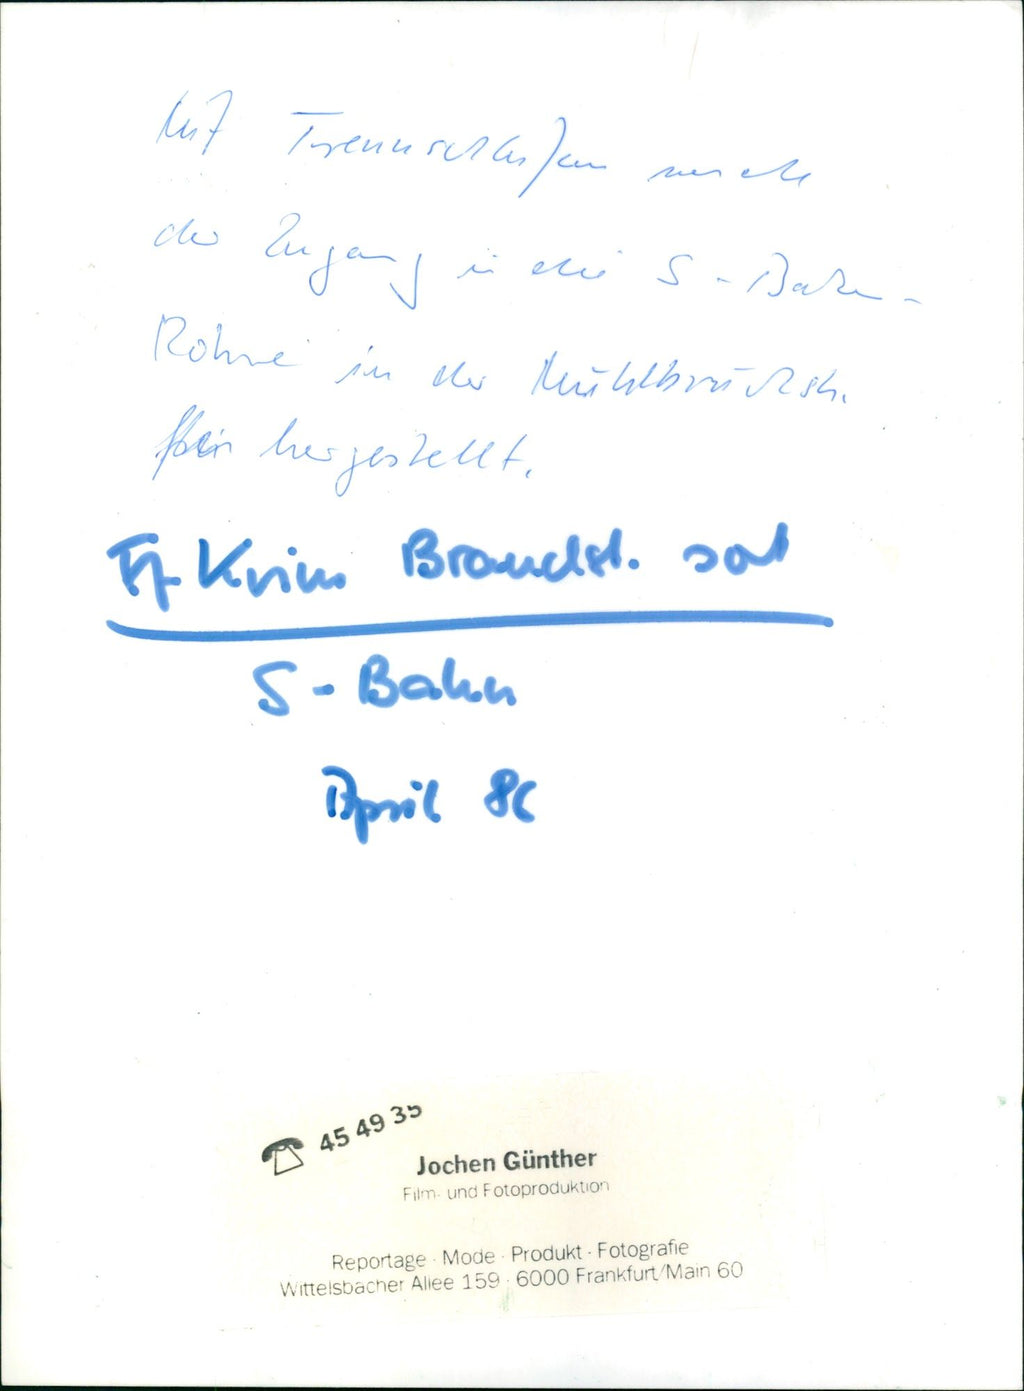 Mit Trennscheiben wurde
der Zugang in die S-Bahn-
Röhre in der Mühlbruchstr.
hergestellt.
Ff. Krim Brandst. sat
S-Bahn
April 86
45 49 35
Jochen Günther
Film- und Fotoproduktion
Reportage · Mode · Produkt · Fotografie
Wittelsbacher Allee 159 · 6000 Frankfurt/Main 60